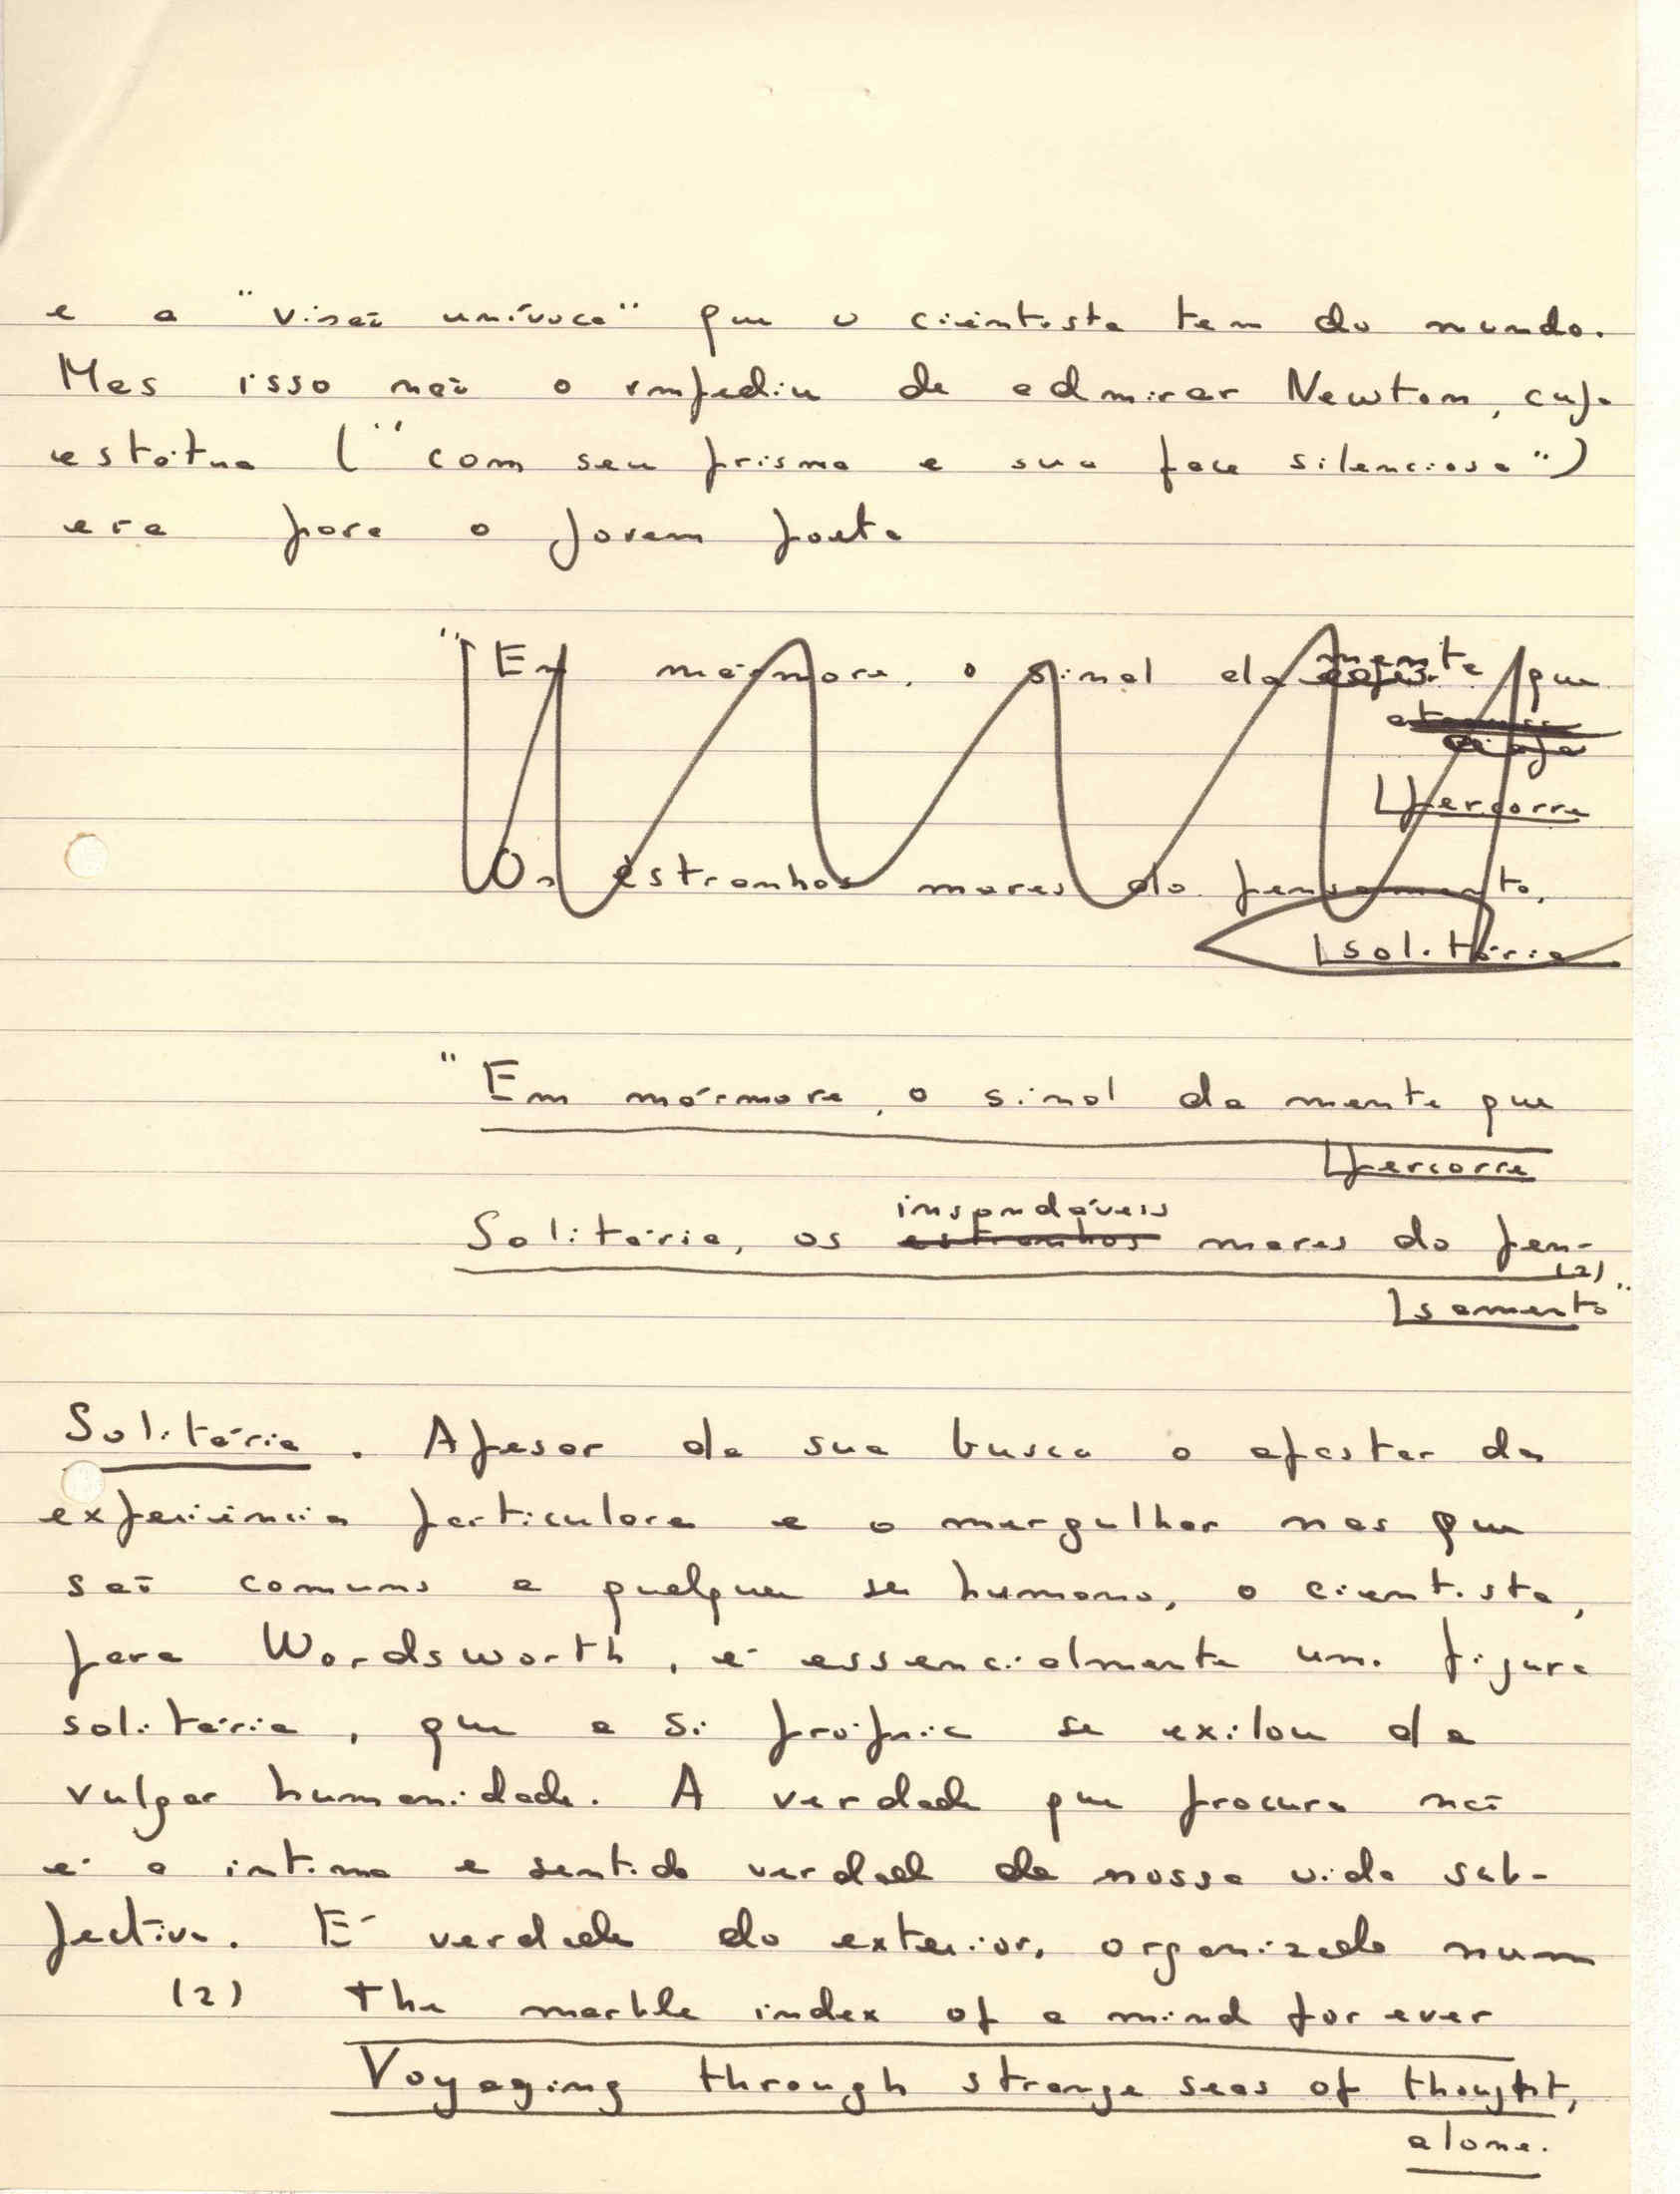 e a "visão unívoca" que o cientista tem do mundo.
Mas isso não o impediu de admirar Newton, cuja
estátua ("com seu prisma e sua face silenciosa")
era para o jovem poeta
"Em mármore, o sinal da mente que
percorre
Os estranhos mares do pensamento,
solitária
"Em mármore, o sinal da mente que
percorre
insondáveis
Solitária, os estranhos mares do pen-
samento (2)"
Solitária. Apesar da sua busca o afastar das
experiências particulares e o mergulhar nas que
são comuns a qualquer ser humano, o cientista,
para Wordsworth, é essencialmente uma figura
solitária, que a si própria se exilou da
vulgar humanidade. A verdade que procura não
é a íntima e sentida verdade da nossa vida sub-
jectiva. É verdade do exterior, organizada num
(2) The marble index of a mind for ever
Voyaging through strange seas of thought,
alone.